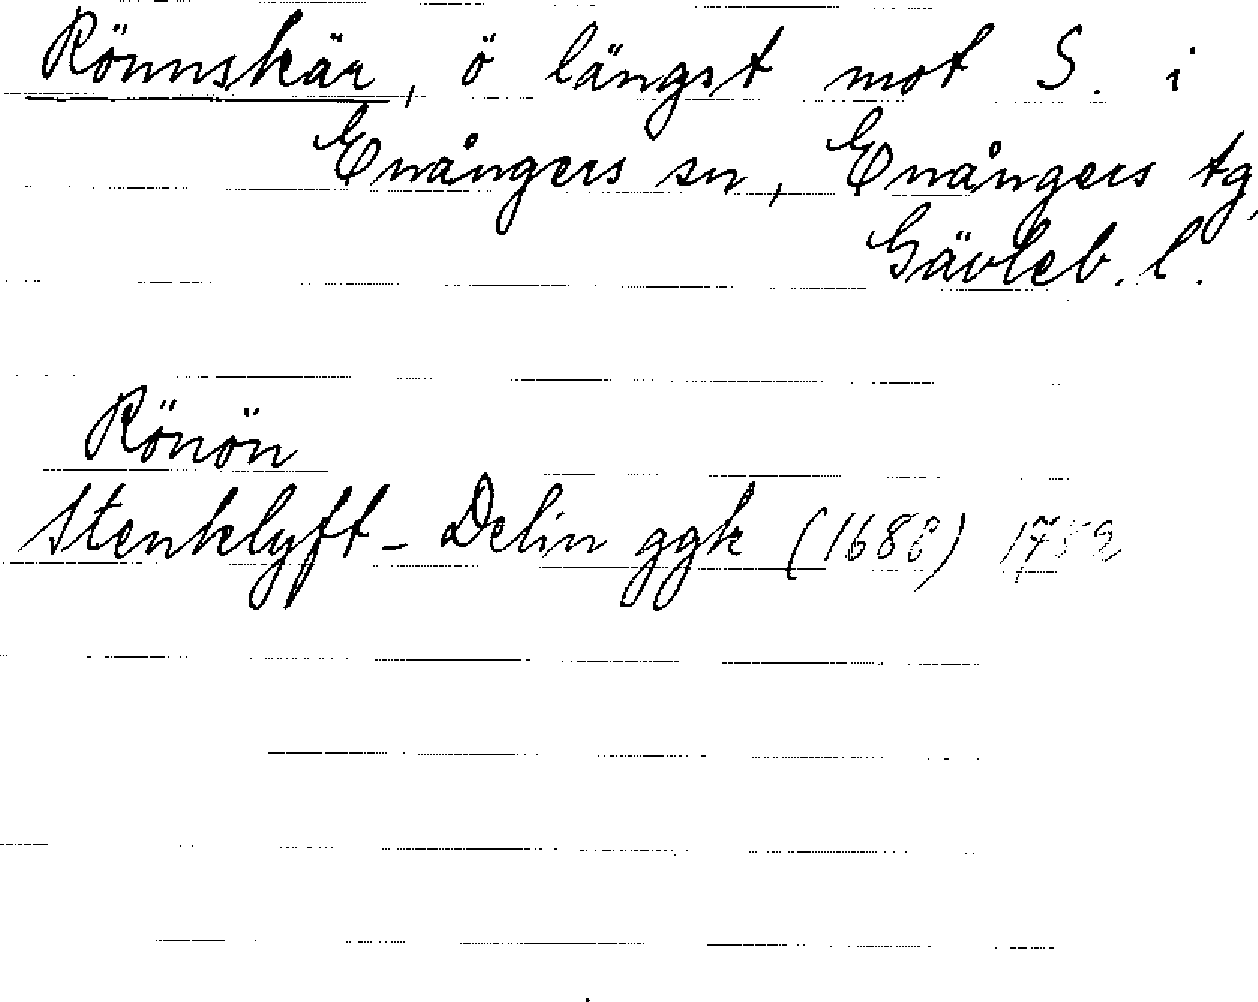 Rönnskär, ö längst mot S. i
Enångers sn, Enångers tg,
Gävleb. l.
Rönön
Stenklyft - Delin ggk (1688) 1752